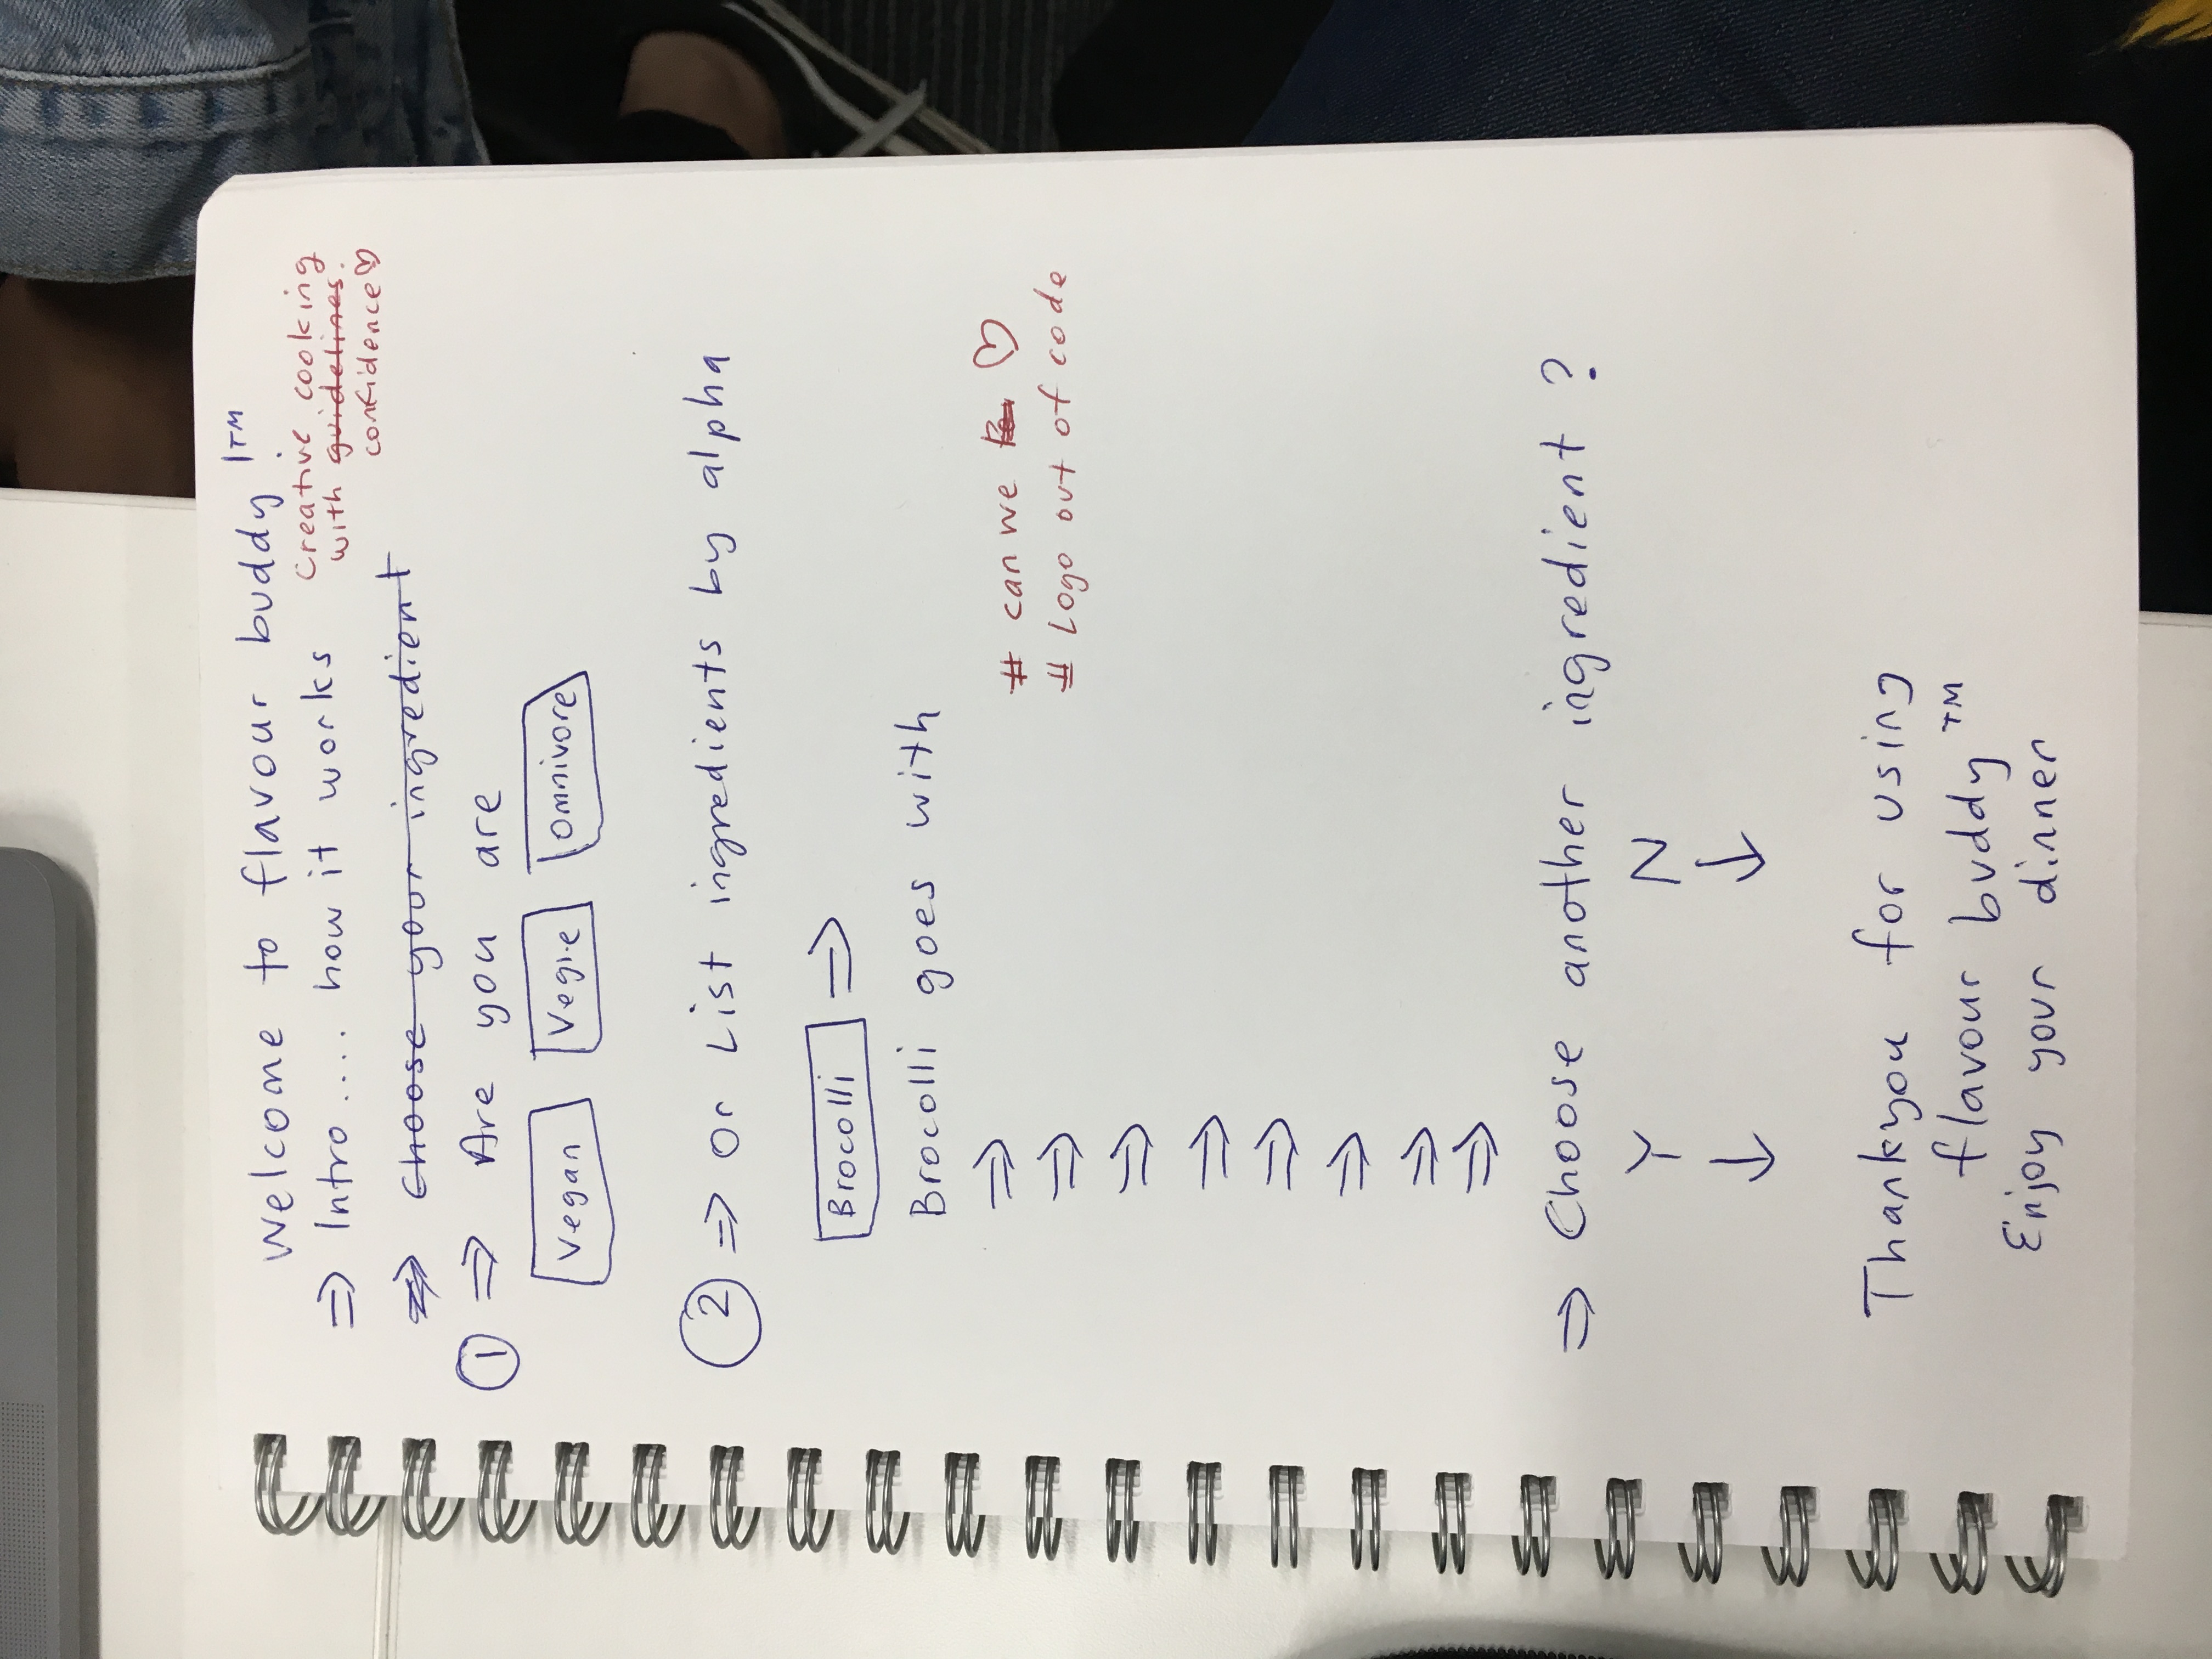 Welcome to flavour buddy!™
⇒ Intro .... how it works
Creative cooking
with guidelines.
confidence♡
⇒ Choose your ingredient
① ⇒ Are you are
Vegan Vegie Omnivore
② ⇒ Or List ingredients by alpha
Brocolli ⇒
Brocolli goes with
⇒
⇒
⇒
⇒
⇒
⇒
⇒
⇒
# can we ♡
# Logo out of code
⇒ Choose another ingredient ?
Y N
↓ ↓
Thankyou for using
flavour buddy™
Enjoy your dinner